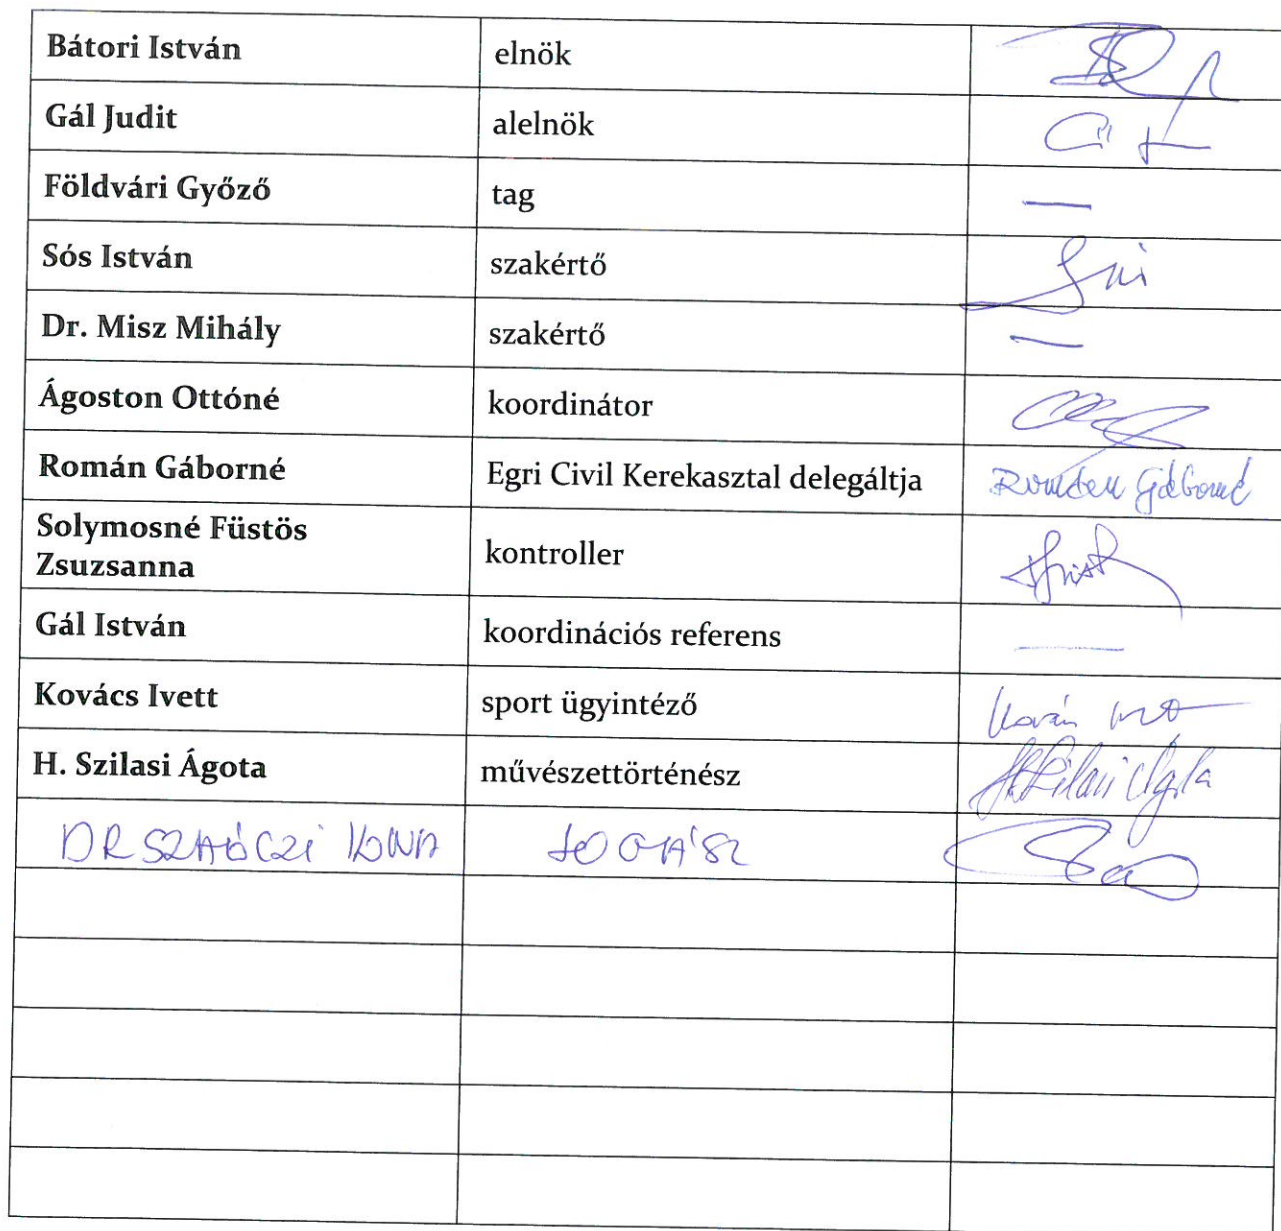 Bátori István elnök
Gál Judit alelnök
Földvári Győző tag —
Sós István szakértő
Dr. Misz Mihály szakértő —
Ágoston Ottóné koordinátor
Román Gáborné Egri Civil Kerekasztal delegáltja Román Gáborné
Solymosné Füstös
Zsuzsanna kontroller
Gál István koordinációs referens —
Kovács Ivett sport ügyintéző
H. Szilasi Ágota művészettörténész H. Szilasi Ágota
DR JOGÁSZ